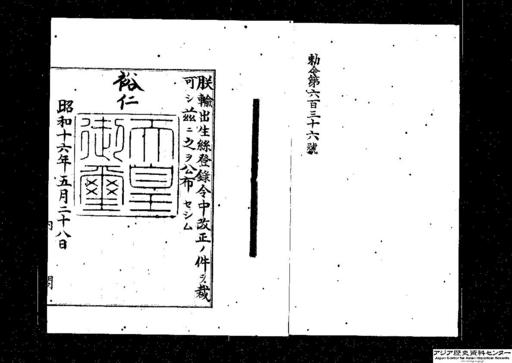 勅令第六百三十六號
朕輸出生絲登錄令中改正ノ件ヲ裁
可シ茲ニ之ヲ公布セシム
裕仁
天皇御璽
昭和十六年五月二十八日
内閣
アジア歴史資料センター
Japan Center for Asian Historical Records